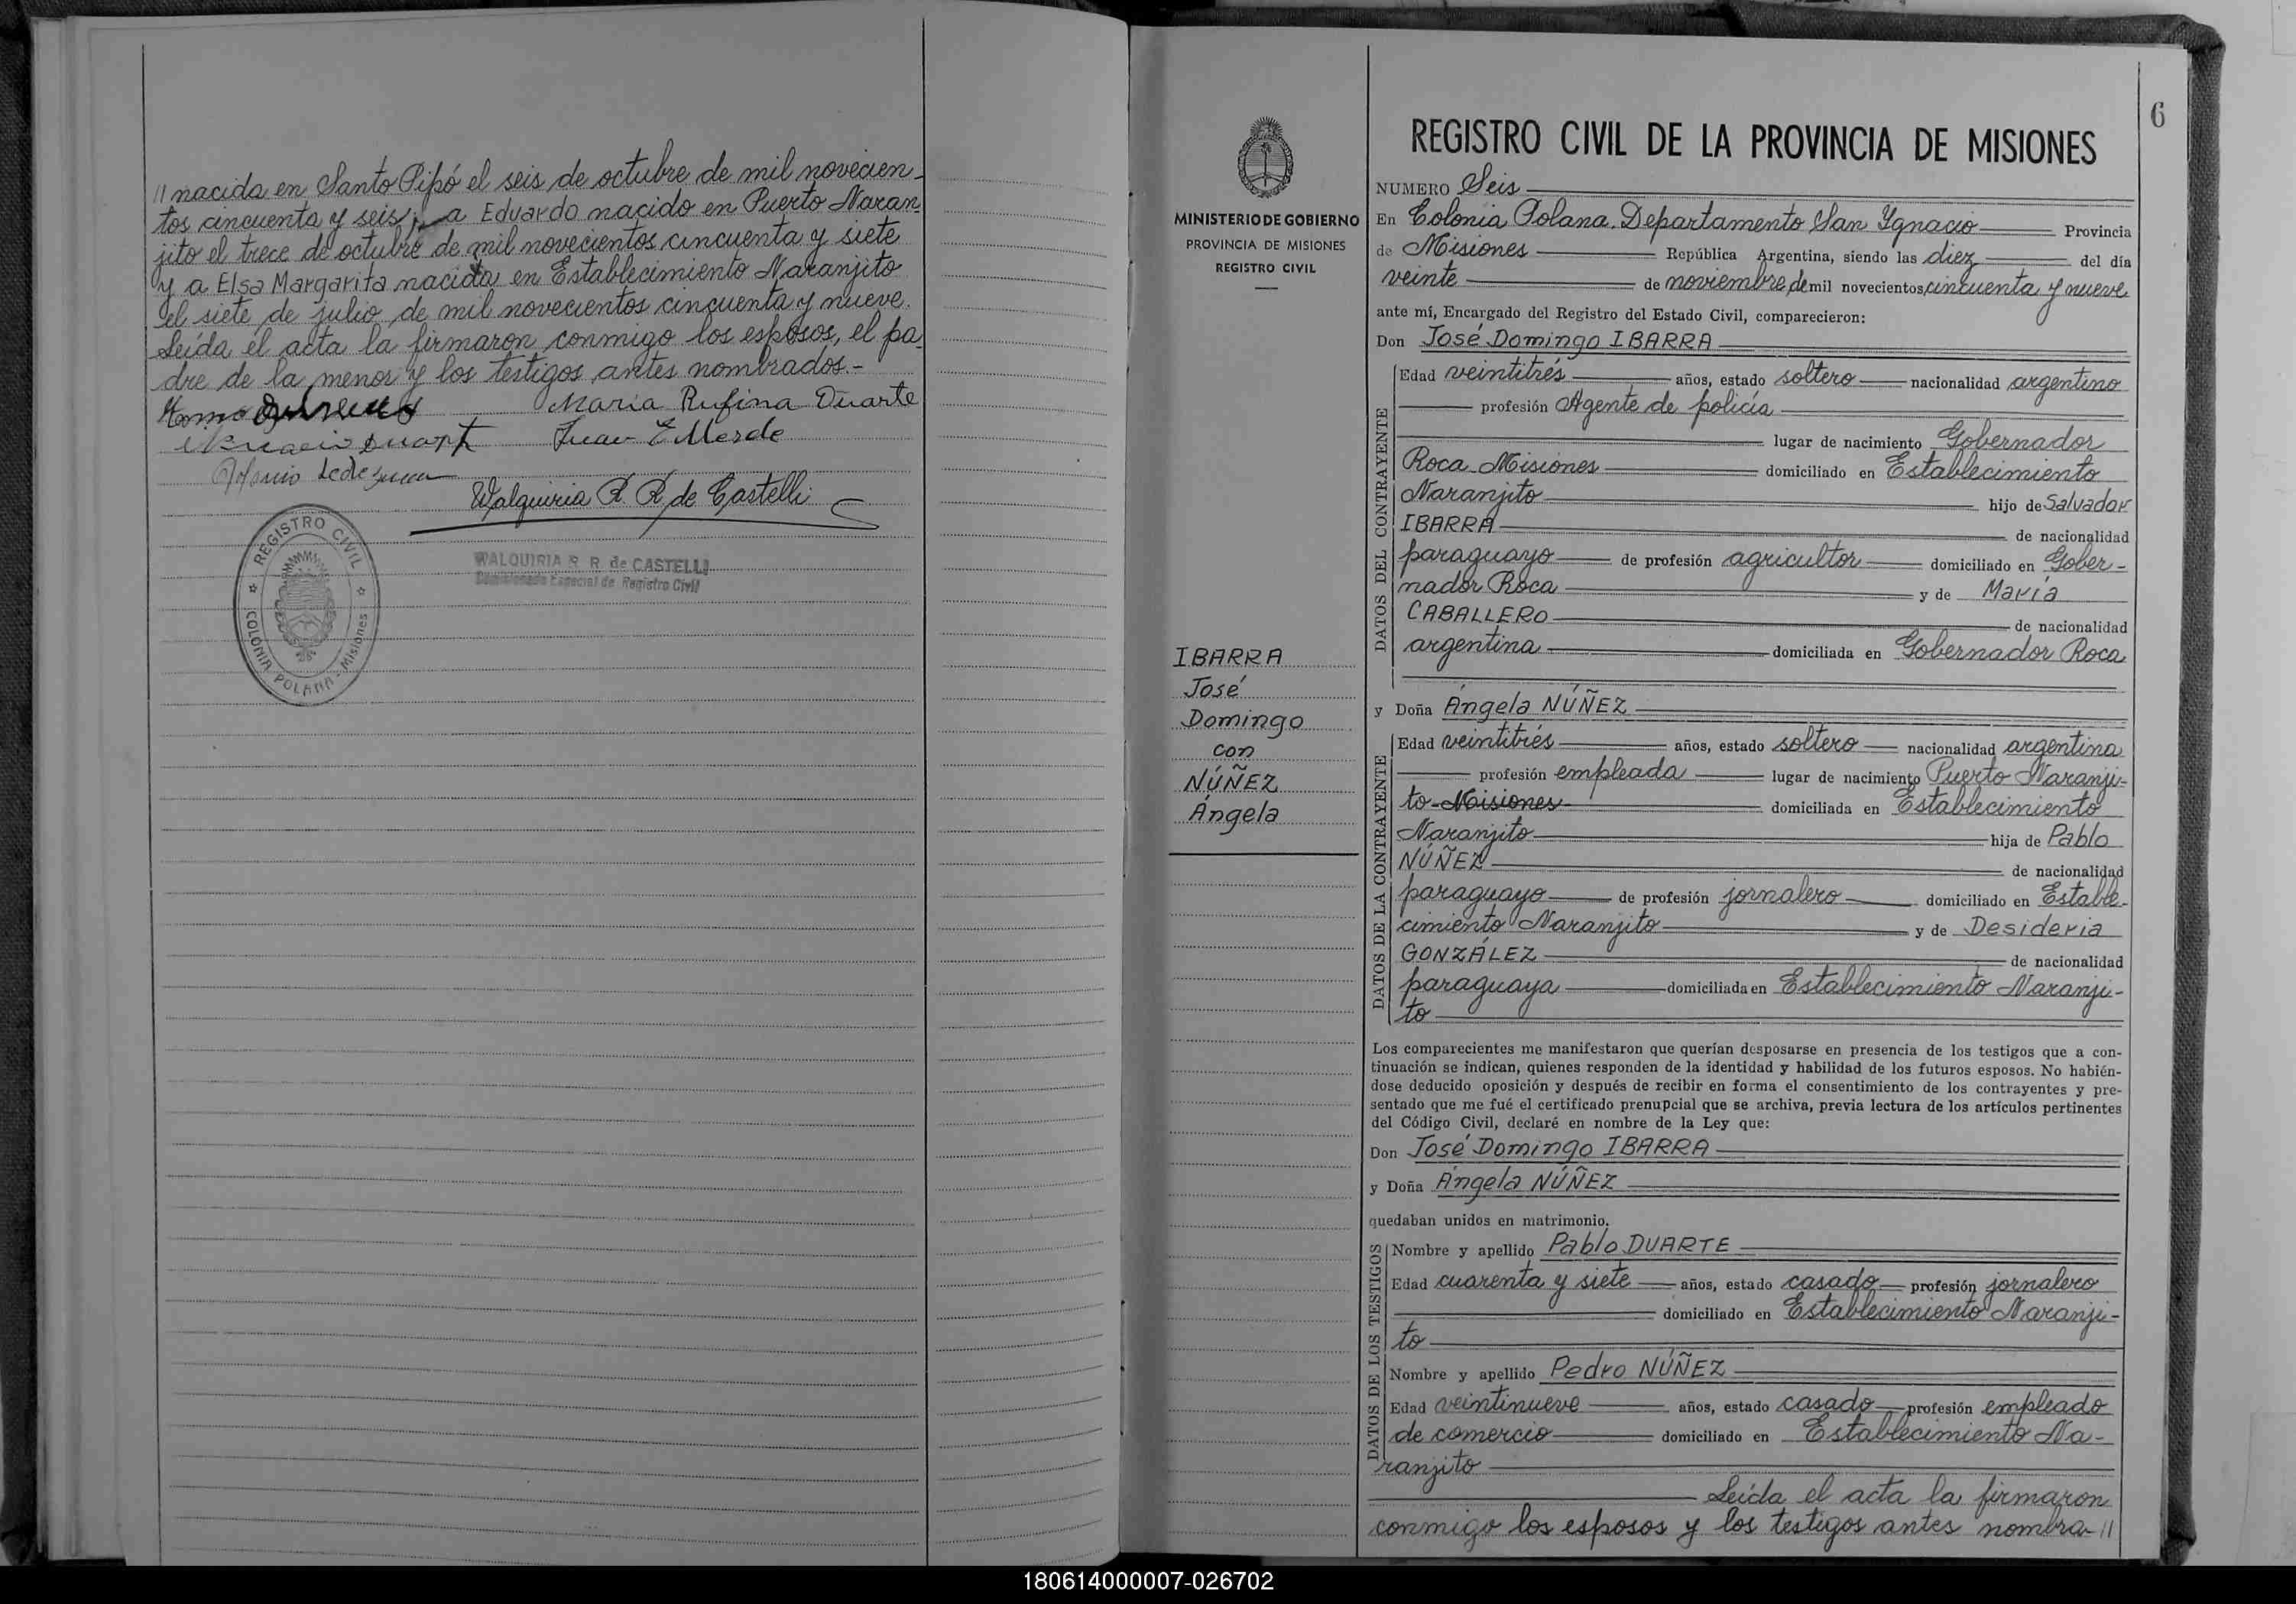 // nacida en Santo Pipó el seis de octubre de mil novecien-
tos cincuenta y seis; a Eduardo nacido en Puerto Naran-
jito el trece de octubre de mil novecientos cincuenta y siete
y a Elsa Margarita nacida en Establecimiento Naranjito
el siete de julio de mil novecientos cincuenta y nueve.
Leída el acta la firmaron conmigo los esposos, el pa-
dre de la menor y los testigos antes nombrados.-
María Rufina Duarte
Duarte Juan E
Ledesma
Walquiria R. R. de Castelli
WALQUIRIA R. R. de CASTELLI
Comisionada Especial de Registro Civil
REGISTRO CIVIL
COLONIA POLANA - Misiones
6
MINISTERIO DE GOBIERNO
PROVINCIA DE MISIONES
REGISTRO CIVIL
IBARRA
José
Domingo
con
NÚÑEZ
Ángela
REGISTRO CIVIL DE LA PROVINCIA DE MISIONES
NUMERO Seis
En Colonia Polana. Departamento San Ygnacio Provincia
de Misiones República Argentina, siendo las diez del día
veinte de noviembre de mil novecientos cincuenta y nueve
ante mí, Encargado del Registro del Estado Civil, comparecieron:
Don José Domingo IBARRA
DATOS DEL CONTRAYENTE
Edad veintitrés años, estado soltero nacionalidad argentino
profesión Agente de policía
lugar de nacimiento Gobernador
Roca-Misiones domiciliado en Establecimiento
Naranjito hijo de Salvador
IBARRA de nacionalidad
paraguayo de profesión agricultor domiciliado en Gober-
nador Roca y de María
CABALLERO de nacionalidad
argentina domiciliada en Gobernador Roca
y Doña Ángela NÚÑEZ
DATOS DE LA CONTRAYENTE
Edad veintitrés años, estado soltero nacionalidad argentina
profesión empleada lugar de nacimiento Puerto Naranji-
to-Misiones domiciliada en Establecimiento
Naranjito hija de Pablo
NÚÑEZ de nacionalidad
paraguayo de profesión jornalero domiciliado en Estable-
cimiento Naranjito y de Desideria
GONZÁLEZ de nacionalidad
paraguaya domiciliada en Establecimiento Naranji-
to
Los comparecientes me manifestaron que querían desposarse en presencia de los testigos que a con-
tinuación se indican, quienes responden de la identidad y habilidad de los futuros esposos. No habién-
dose deducido oposición y después de recibir en forma el consentimiento de los contrayentes y pre-
sentado que me fué el certificado prenupcial que se archiva, previa lectura de los artículos pertinentes
del Código Civil, declaré en nombre de la Ley que:
Don José Domingo IBARRA
y Doña Ángela NÚÑEZ
quedaban unidos en matrimonio.
DATOS DE LOS TESTIGOS
Nombre y apellido Pablo DUARTE
Edad cuarenta y siete años, estado casado profesión jornalero
domiciliado en Establecimiento Naranji-
to
Nombre y apellido Pedro NÚÑEZ
Edad veintinueve años, estado casado profesión empleado
de comercio domiciliado en Establecimiento Na-
ranjito
Leída el acta la firmaron
conmigo los esposos y los testigos antes nombra- //
180614000007-026702